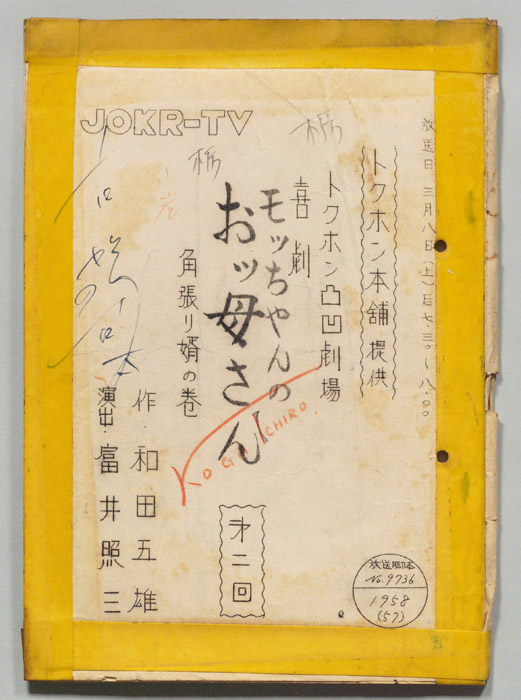 JOKR-TV
放送日 三月八日(土)后七.三〇〜八.〇〇
トクホン本舗提供
トクホン凸凹劇場
喜劇
モッちゃんの
おッ母さん
角張リ婿の巻
KOGA ICHIRO
第二回
作.和田五雄
演出.富井照三
栃
栃
放送台本
No.9736
1958
(57)